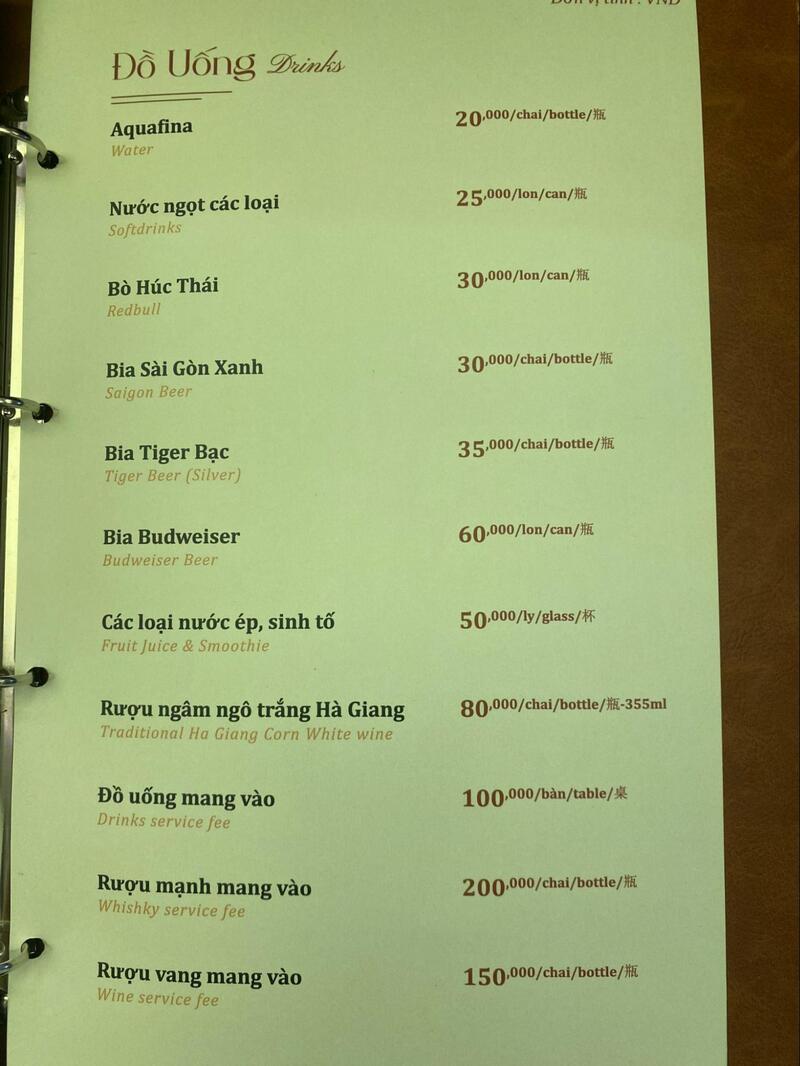 Đơn vị tính : VND
Đồ Uống Drinks
Aquafina 20,000/chai/bottle/瓶
Water
Nước ngọt các loại 25,000/lon/can/瓶
Softdrinks
Bò Húc Thái 30,000/lon/can/瓶
Redbull
Bia Sài Gòn Xanh 30,000/chai/bottle/瓶
Saigon Beer
Bia Tiger Bạc 35,000/chai/bottle/瓶
Tiger Beer (Silver)
Bia Budweiser 60,000/lon/can/瓶
Budweiser Beer
Các loại nước ép, sinh tố 50,000/ly/glass/杯
Fruit Juice & Smoothie
Rượu ngâm ngô trắng Hà Giang 80,000/chai/bottle/瓶-355ml
Traditional Ha Giang Corn White wine
Đồ uống mang vào 100,000/bàn/table/桌
Drinks service fee
Rượu mạnh mang vào 200,000/chai/bottle/瓶
Whishky service fee
Rượu vang mang vào 150,000/chai/bottle/瓶
Wine service fee